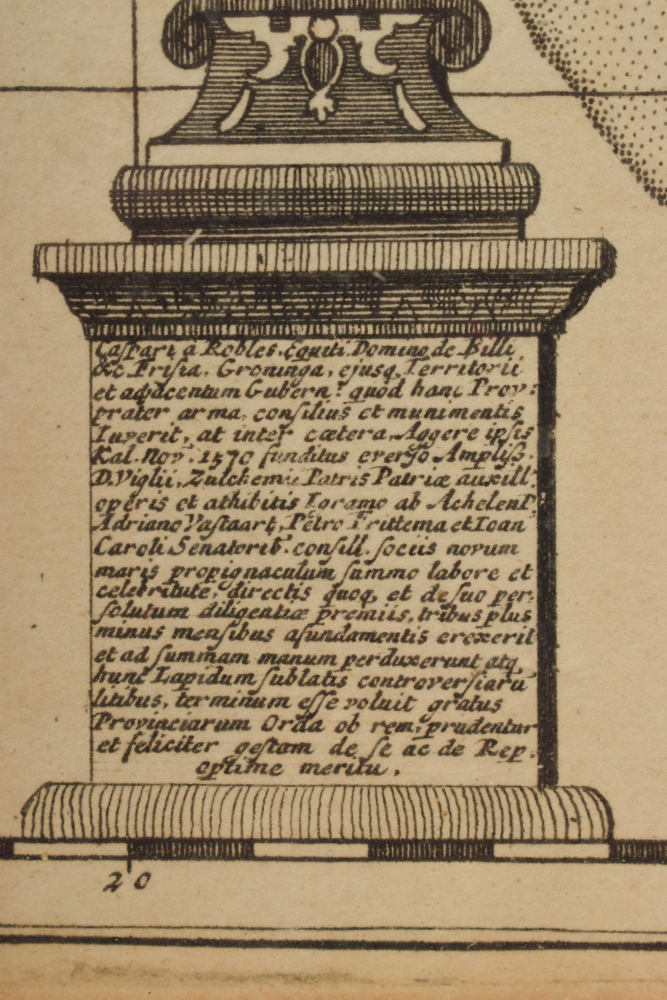 Caspari a Robles, Equiti Domino de Billi,
&c Frisia, Groninga, ejusq, Territorii
et adjacentum Gubern.ͬ quod hanc Prov:
præter arma, consilius et munimentis
Iuverit, at inter cætera, Aggere ipsis
Kal. Nov. 1570 funditus everso Ampliss.
D. Viglii, Zuichemii Patris Patriæ auxill.
operis et athibitis Ioramo ab Achelen P.
Adriano Vastaart, Petro Frittema et Ioan
Caroli Senatorib. consill. sociis novum
maris propignaculum summo labore et
celebritute, directis quoq, et de suo per-
solutum diligentiæ premiis, tribus plus
minus mensibus afundamentis erexerit
et ad summam manum perduxerunt atq,
hunc Lapidum sublatis controversiarū
litibus, terminum esse voluit gratus
Provinciarum Orda ob rem, prudentur
et feliciter gestam de se ac de Rep.
optime meritu.
20